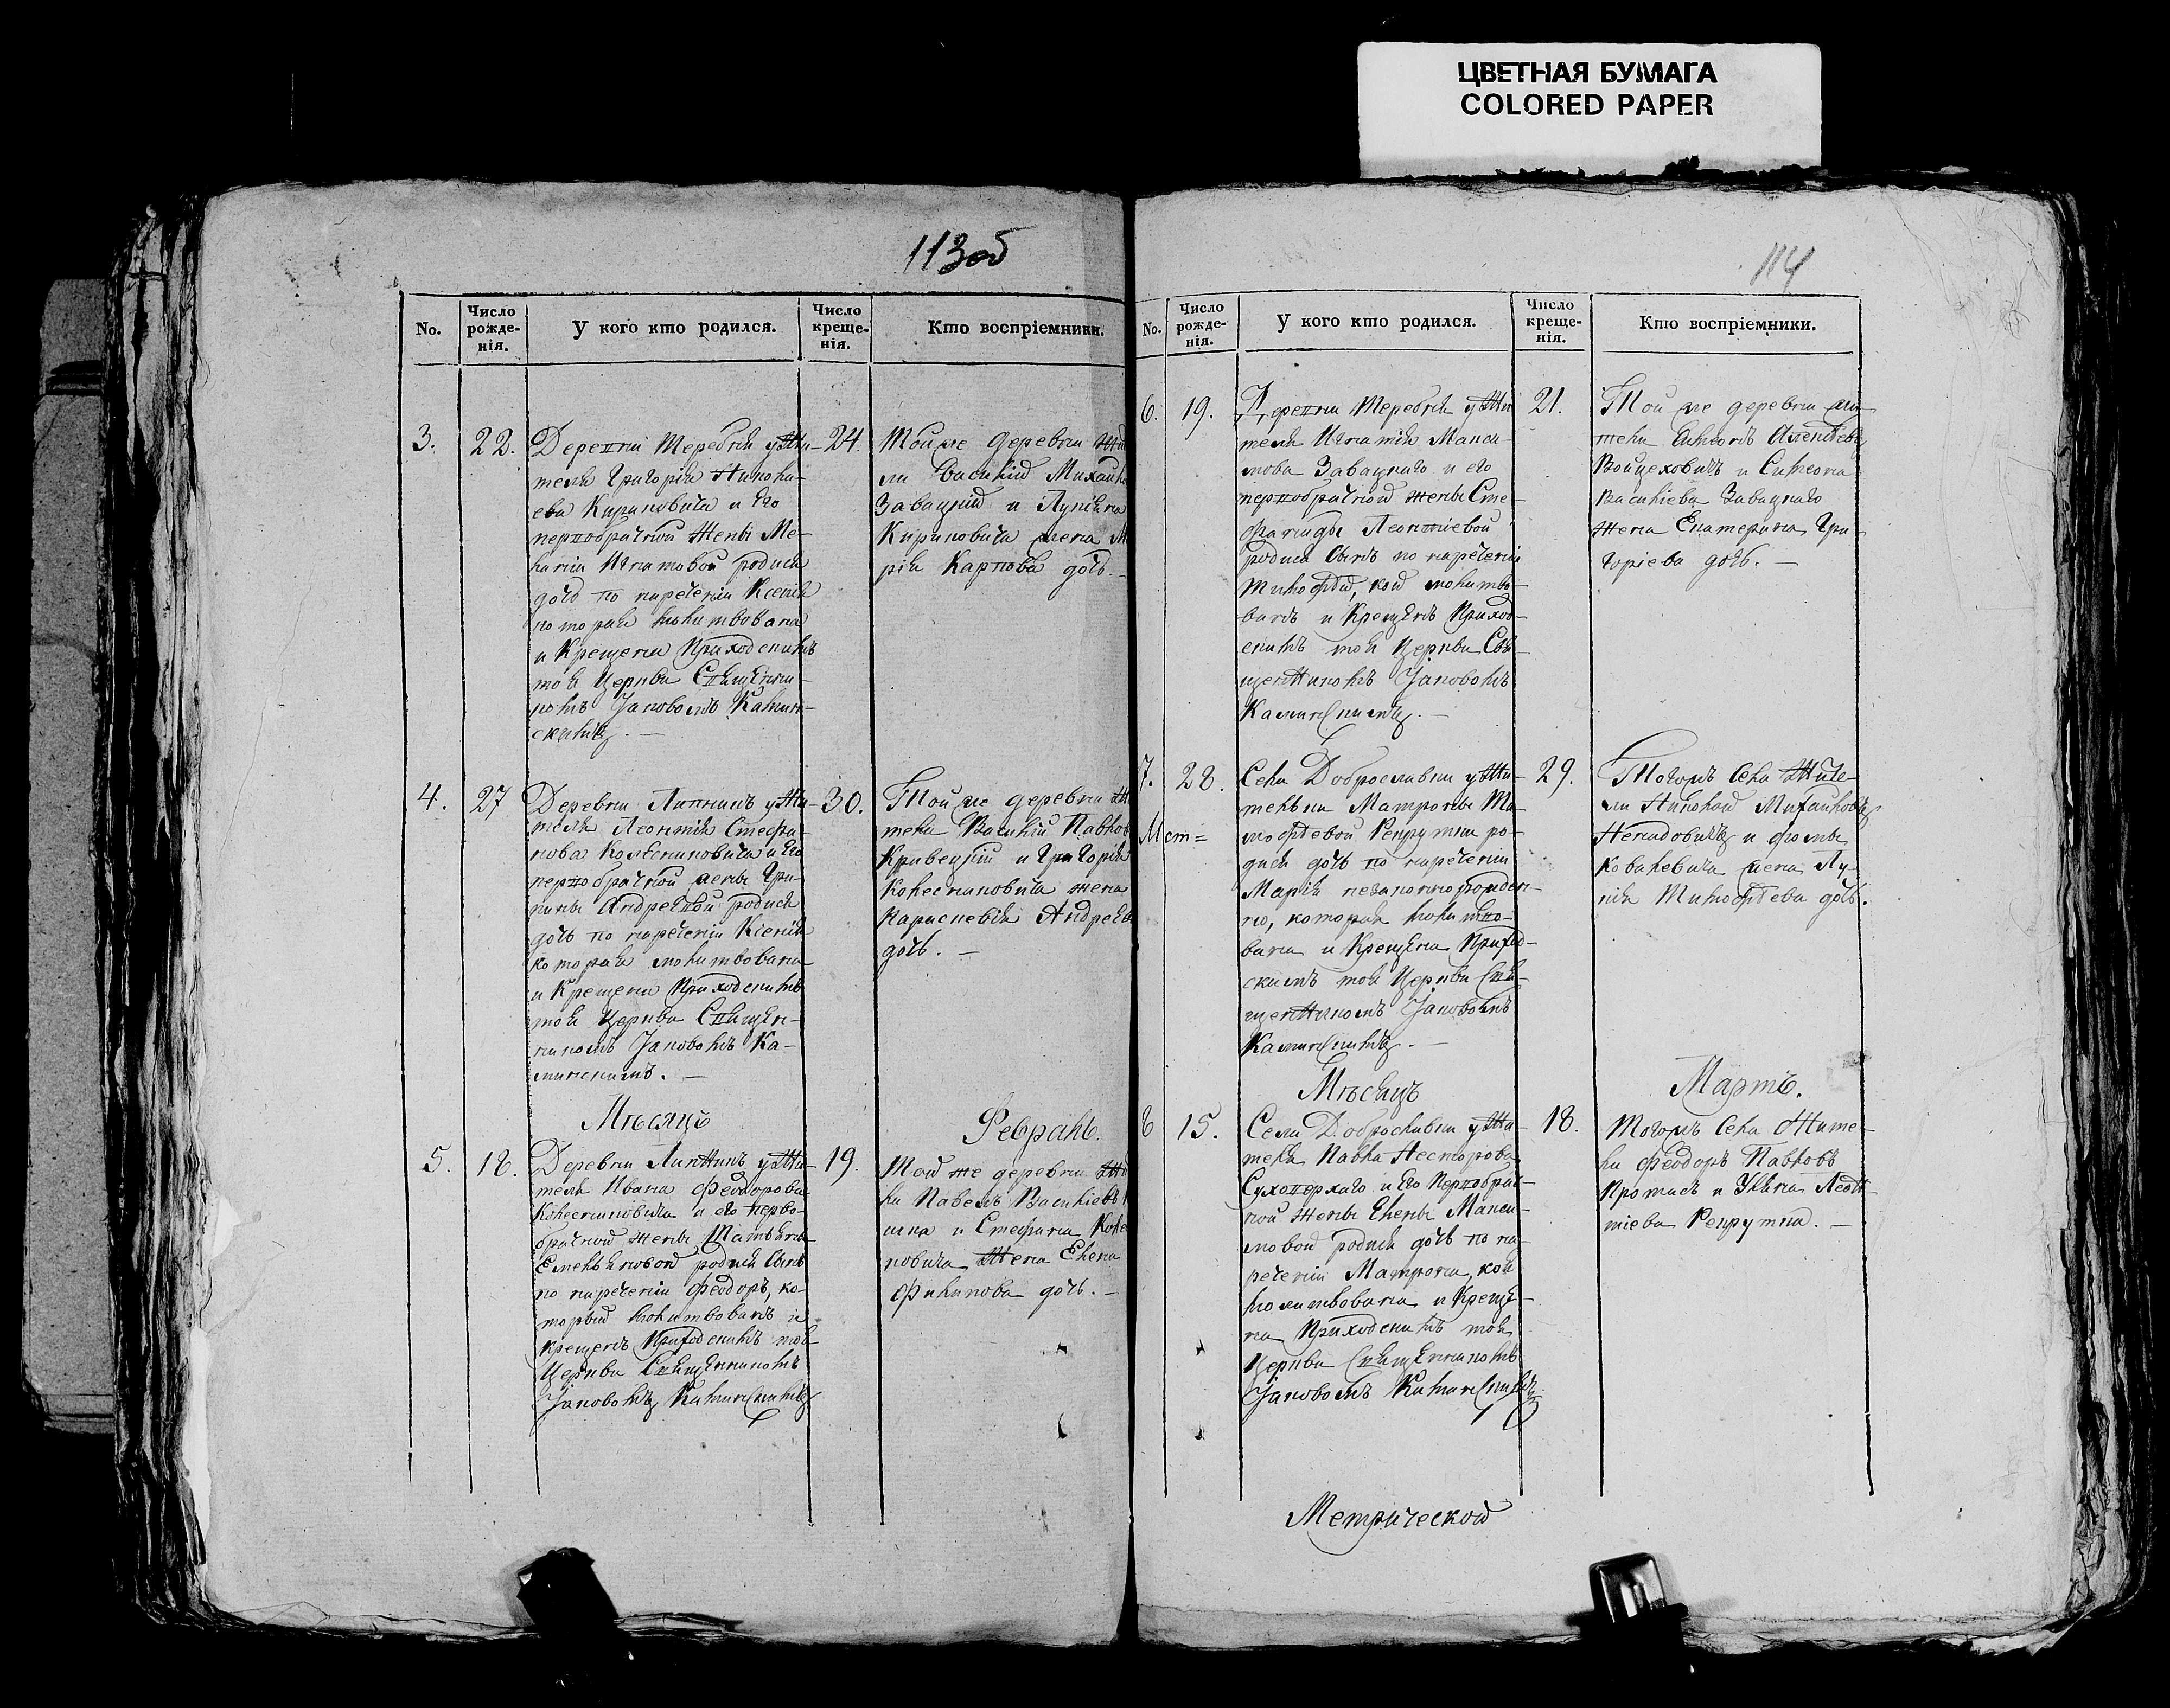 ЦВЕТНАЯ БУМАГА
COLORED PAPER
113об
No.
Число рожде-нія.
У кого кто родился.
Число креще-нія.
Кто воспріемники.
3.
22.
Деревни Теребни у Жи-
теля Григорія
ева Кириновича и Его
первобрачной Жены Ме-
ланіи Игнатовой родися
дочь по наречени Ксенія
которая молитвована
и Крещена Приходскимъ
тоя Церкви Священни-
комъ Іаковомъ Камин-
скимъ. —
24.
Той же деревни
ли Василій Михаи
Завацкій и Лукіяна
Кириновича жена М
рія Карпова дочь. —
4.
27
Деревни Липникъ у Жи-
теля Леонтія Стефа-
нова Колесниковича и Его
первобрачной жены
Андреевой родися
дочь по наречени Ксенія
которая молитвована
и Крещена Приходскимъ
тоя Церкви Священ-
никомъ Іаковомъ Ка-
минскимъ. —
30.
Той же деревни
тели Василій Павлов
Кривецкій и Григорія
Колесниковича жена
Андреева
дочь. —
Мѣсяцъ
Февраль.
5.
18.
Деревни Липникъ у Жи-
теля Ивана Феодорова
Колесниковича и его перво-
брачной жены Татьяны
Емельяновой родися сынъ
по наречени Феодоръ, ко-
торый молитвованъ и
крещенъ Приходскимъ тоя
Церкви Священникомъ
Іаковомъ Каминскимъ
19.
Той же деревни
ли Павелъ Васильевъ
и Стефана Коле
новича Жена Елена
Филипова дочь. —
114
No.
Число рожде-нія.
У кого кто родился.
Число креще-нія.
Кто воспріемники.
6.
19.
Деревни Теребни у Жи
теля Игнатія Макси-
мова Завацкаго и его
первобрачной жены Сте-
фаниды Леонтіевой
родися сынъ по наречени
Тимофей, кой молитво-
ванъ и Крещенъ Приход-
скимъ тоя Церкви Свя-
щенникомъ Іаковомъ
Каминскимъ. —
21.
Той же деревни жи-
тели
Войцеховичъ и Симеона
Василіева Завацкаго
жена Екатерина Гри-
горіева дочь. —
7.
28.
Села Доброславки у Жи-
тельки Матроны Ти-
мофеевой Репрутки ро-
дися дочь по наречени
Марія незаконнорожден-
но, которая молитво-
вана и Крещена Приход-
скимъ тоя Церкви Свя-
щенникомъ Іаковомъ
Каминскимъ. —
29.
Тогожъ Села Жите-
ли Николай Михайловъ
и Фомы
Ковалевича жена Лу-
кія Тимофеева дочь.
Мѣсяцъ
Мартъ.
8
15.
Села Доброславки у Жи-
теля Павла Несторова
и Его Первобрач-
ной жены Елены Макси-
мовой родися дочь по на-
речени Матрона, коя
молитвована и Креще-
на Приходскимъ тоя
Церкви Священникомъ
Іаковомъ Каминскимъ
18.
Тогожъ Села Жите-
ли Феодоръ Павловъ
и Уліяна Леон-
тіева Репрутка. —
Метрической